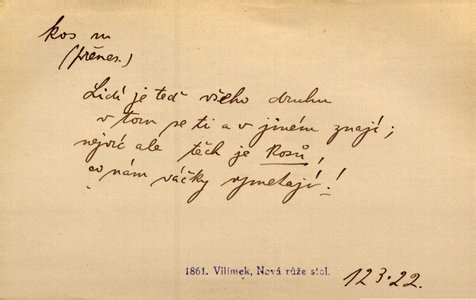 kos m
(přenes.)
Lidí je teď všeho druhu
v tom se ti a v jiném znají;
nejvíc ale těch je kosů,
co nám váčky vymetají!
1861. Vilímek, Nová růže stol.
123.22.